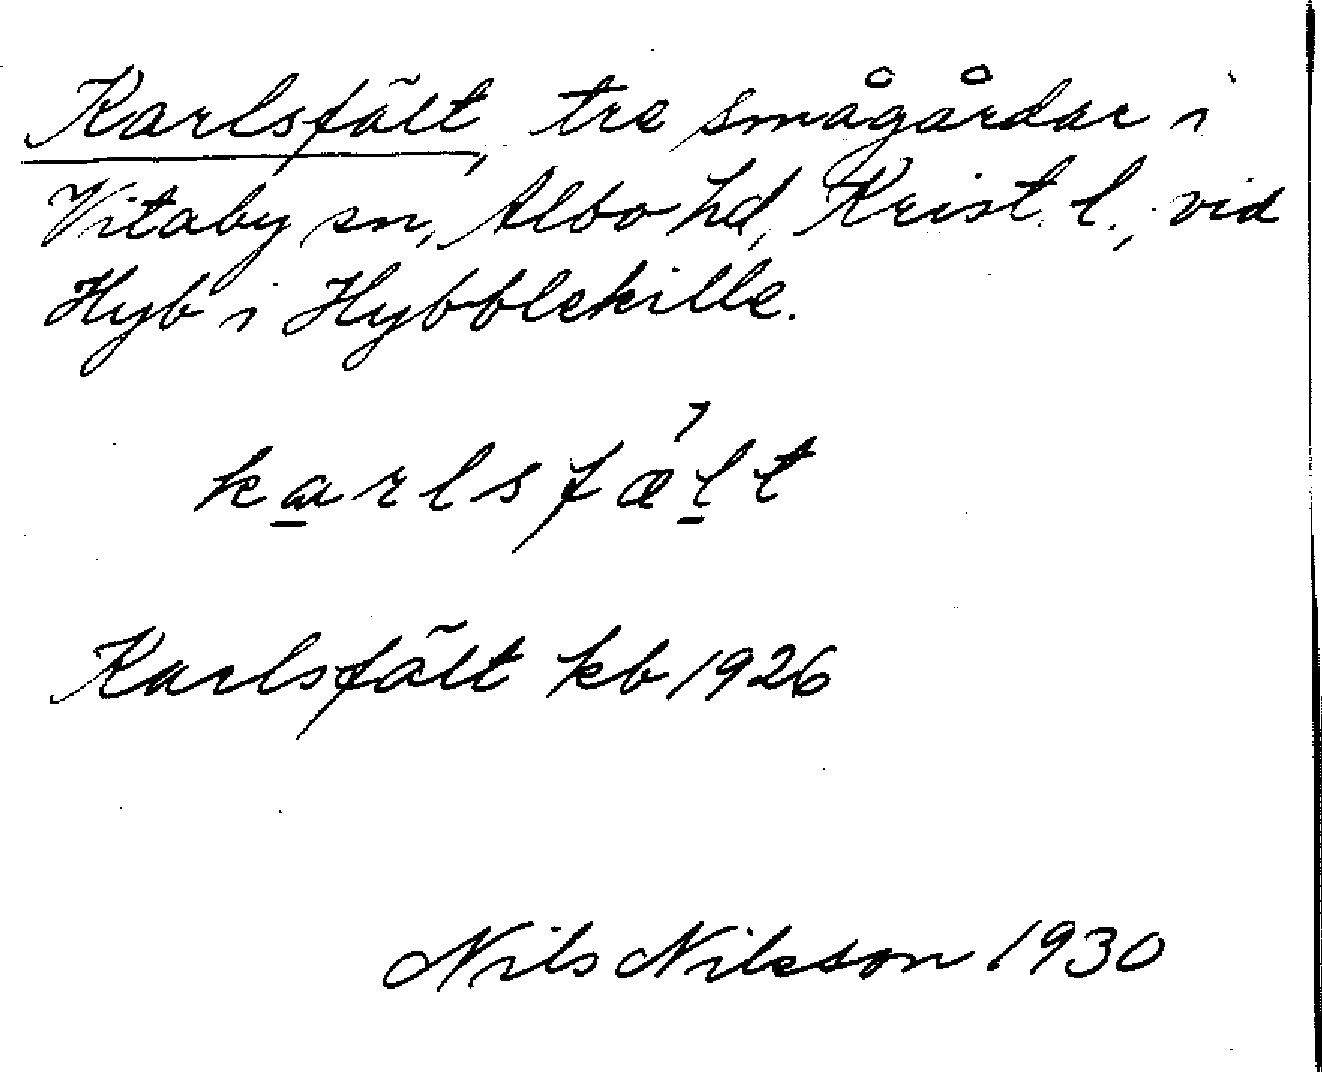 Karlsfält, tre smågårdar i
Vitaby sn, Albo hd, Krist. l., vid
Hyb i Hybblekille.
karlsfælt
Karlsfält kb 1926
Nils Nilsson 1930